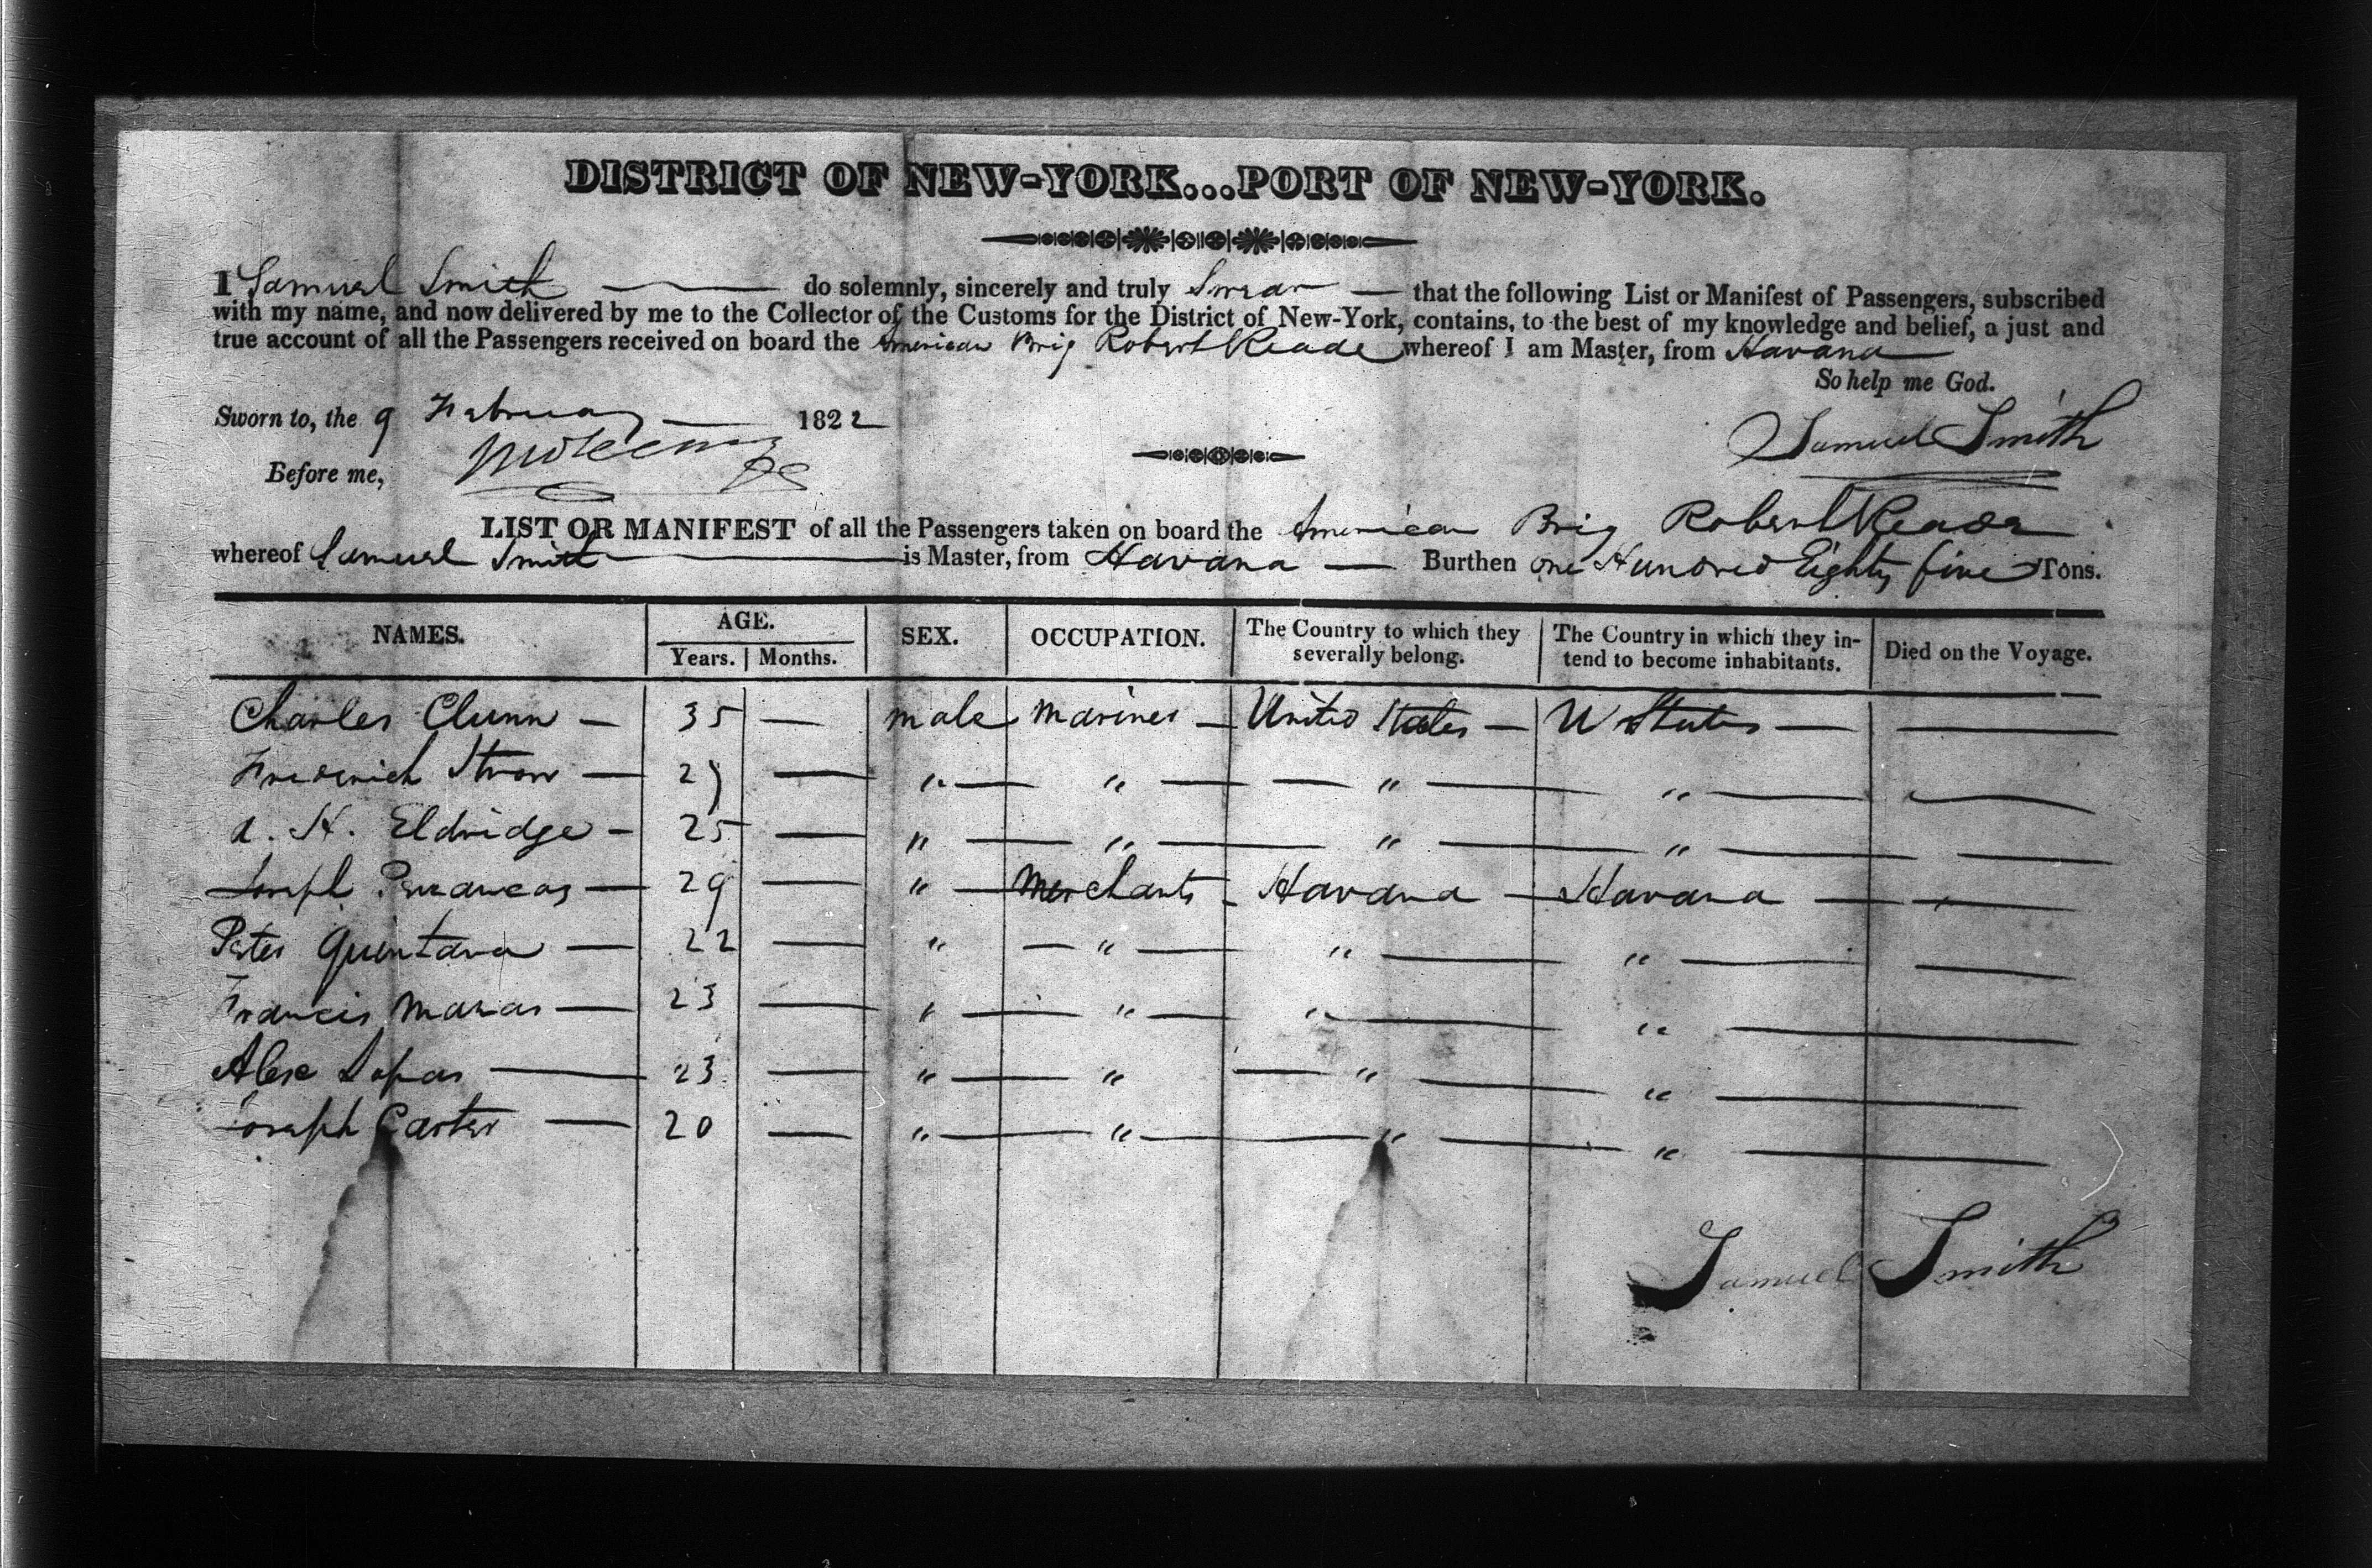 DISTRICT OF NEW-YORK...PORT OF NEW-YORK.
I Samuel Smith — do solemnly, sincerely and truly Swear — that the following List or Manifest of Passengers, subscribed
with my name, and now delivered by me to the Collector of the Customs for the District of New-York, contains, to the best of my knowledge and belief, a just and
true account of all the Passengers received on board the American Brig Robert Reade whereof I am Master, from Havana —
So help me God.
Sworn to, the 9 February — 1822
Samuel Smith
Before me,
LIST OR MANIFEST of all the Passengers taken on board the American Brig Robert Reade
whereof Samuel Smith — is Master, from Havana — Burthen one Hundred Eighty five Tons.
NAMES. AGE. SEX. OCCUPATION. The Country to which they severally belong. The Country in which they in-tend to become inhabitants. Died on the Voyage.
Years. Months.
Charles Clunn — 35 — male mariner — United States — U States — —
Frederick — 27 — " — " — " — " — —
A. H. Eldridge — 25 — " — " — " — " — —
Joseph — 29 — " — Merchants — Havana — Havana — —
Peter Quintana — 22 — " — " — " — " — —
Francis Maras — 23 — " — " — " — " — —
Alex Lopas — 23 — " — " — " — " — —
Joseph Carter — 20 — " — " — " — " — —
Samuel Smith